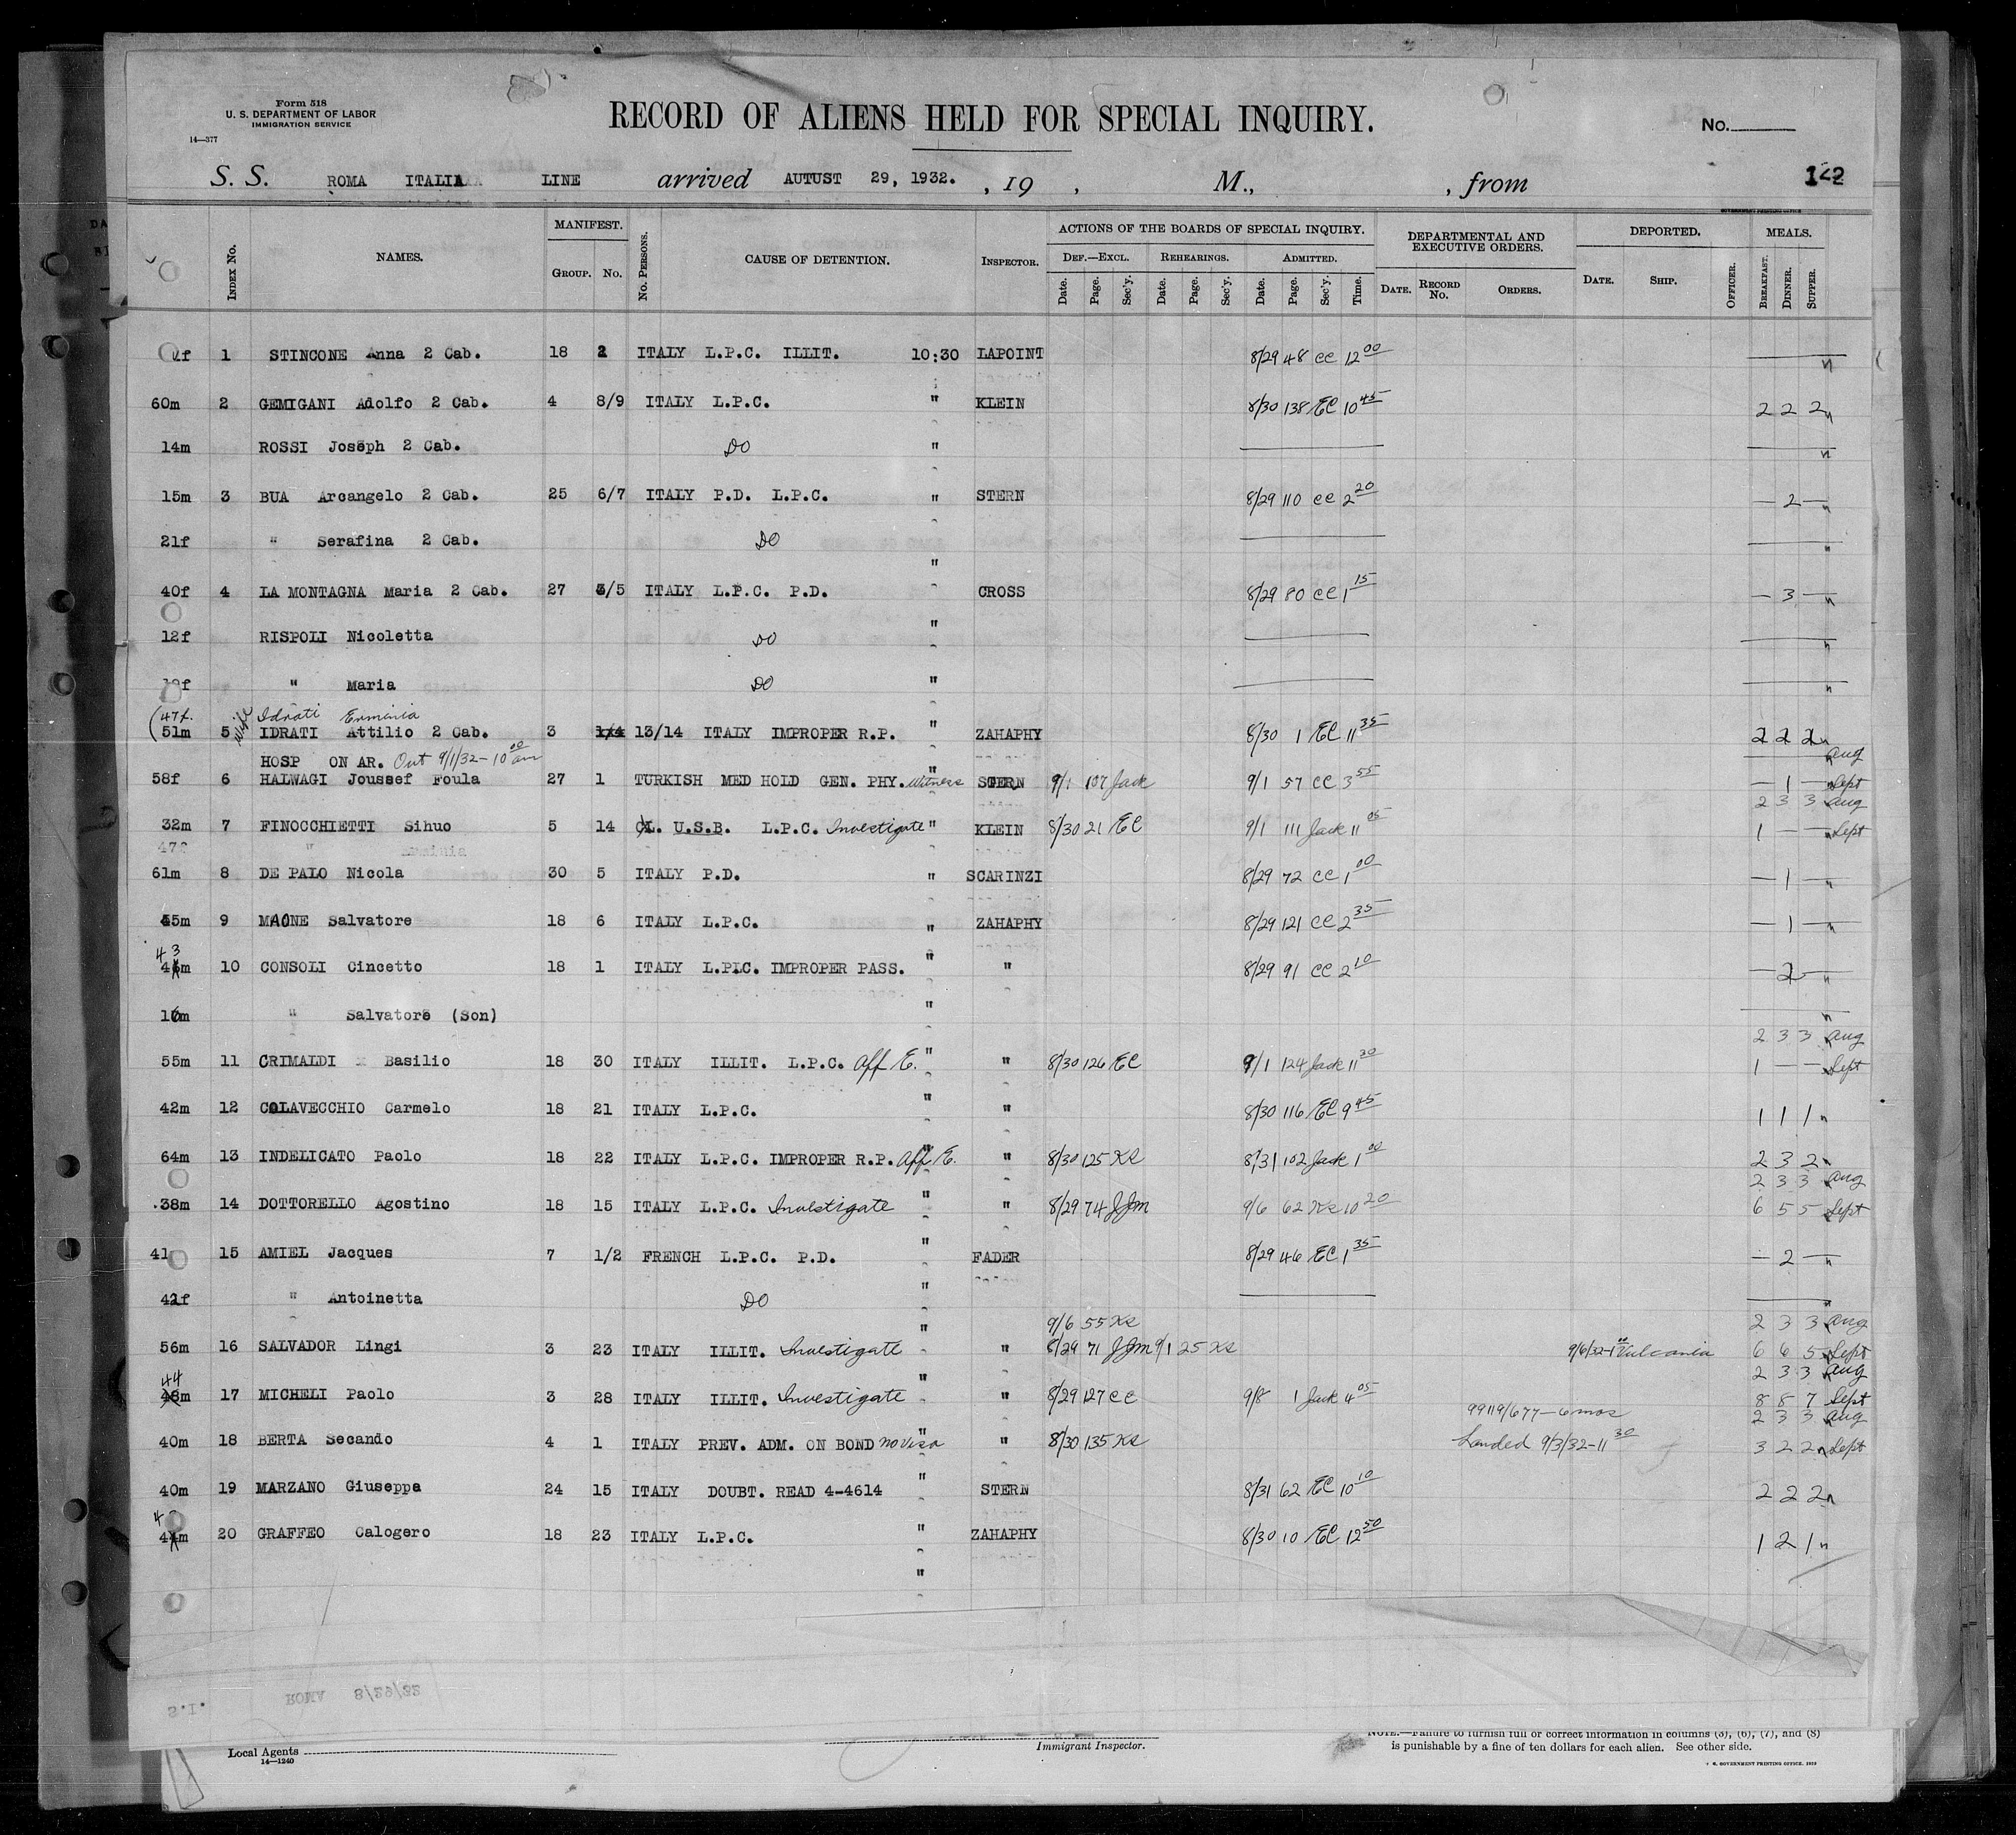 Form 518
U. S. DEPARTMENT OF LABOR
IMMIGRATION SERVICE
14—377
RECORD OF ALIENS HELD FOR SPECIAL INQUIRY.
No.
S. S. ROMA ITALIA LINE arrived AUTUST 29, 1932. , 19 , M., , from
Index No. NAMES. MANIFEST. Group. No. No. Persons. CAUSE OF DETENTION. Inspector. ACTIONS OF THE BOARDS OF SPECIAL INQUIRY. DEPARTMENTAL AND EXECUTIVE ORDERS. DEPORTED. MEALS.
Def.—Excl. Rehearings. Admitted.
Date. Page. Sec'y. Date. Page. Sec'y. Date. Page. Sec'y. Time. Date. Record No. Orders. Date. Ship. Officer. Breakfast. Dinner. Supper.
1 STINCONE Anna 2 Cab. 18 2 ITALY L.P.C. ILLIT. 10:30 LAPOINT 8/29 48 CC 12 00
60m 2 GEMIGANI Adolfo 2 Cab. 4 8/9 ITALY L.P.C. " KLEIN 8/30 138 EC 10 45 2 2 2
14m ROSSI Joseph 2 Cab. DO "
15m 3 BUA Arcangelo 2 Cab. 25 6/7 ITALY P.D. L.P.C. " STERN 8/29 110 CC 2 20 — 2 —
21f " Serafina 2 Cab. DO "
40f 4 LA MONTAGNA Maria 2 Cab. 27 3/5 ITALY L.P.C. P.D. CROSS 8/29 80 CC 1 15 — 3 —
12f RISPOLI Nicoletta DO "
" Maria DO "
47f. wife Idrati Erminia
51m 5 IDRATI Attilio 2 Cab. 3 13/14 ITALY IMPROPER R.P. " ZAHAPHY 8/30 1 EC 11 35 2 2 2
HOSP ON AR. Out 9/1/32 - 10 00 am Aug
58f 6 HALWAGI Joussef Foula 27 1 TURKISH MED HOLD GEN. PHY. Witness " STERN 9/1 107 Jack 9/1 57 CC 3 55 — 1 — Sept
2 3 3 Aug
32m 7 FINOCCHIETTI Sihuo 5 14 U.S.B. L.P.C. Investigate " KLEIN 8/30 21 EC 9/1 111 Jack 11 05 1 — — Sept
61m 8 DE PALO Nicola 30 5 ITALY P.D. " SCARINZI 8/29 72 CC 1 00 — 1 —
45m 9 MAONE Salvatore 18 6 ITALY L.P.C. " ZAHAPHY 8/29 121 CC 2 35 — 1 —
43
m 10 CONSOLI Cincetto 18 1 ITALY L.P.C. IMPROPER PASS. " " 8/29 91 CC 2 10 — 2 —
16m " Salvatore (Son) "
2 3 3 Aug
55m 11 CRIMALDI Basilio 18 30 ITALY ILLIT. L.P.C. Aff E. " " 8/30 126 EC 9/1 124 Jack 11 30 1 — — Sept
42m 12 COLAVECCHIO Carmelo 18 21 ITALY L.P.C. " " 8/30 116 EC 9 45 1 1 1
64m 13 INDELICATO Paolo 18 22 ITALY L.P.C. IMPROPER R.P. Aff E. " " 8/30 125 KS 8/31 102 Jack 1 00 2 3 2
2 3 3 Aug
38m 14 DOTTORELLO Agostino 18 15 ITALY L.P.C. Investigate " " 8/29 74 JJM 9/6 62 KS 10 20 6 5 5 Sept
41 15 AMIEL Jacques 7 1/2 FRENCH L.P.C. P.D. " FADER 8/29 46 EC 1 35 — 2 —
42f " Antoinetta DO "
9/6 55 KS 2 3 3 Aug
56m 16 SALVADOR Lingi 3 23 ITALY ILLIT. Investigate " " 8/29 71 JJM 9/1 25 KS 9/6/32-1 00 Vulcania 6 6 5 Sept
44 2 3 3 Aug
48m 17 MICHELI Paolo 3 28 ITALY ILLIT. Investigate " " 8/29 127 CC 9/8 1 Jack 4 05 8 8 7 Sept
99119/677 — 6 mos 2 3 3 Aug
40m 18 BERTA Secando 4 1 ITALY PREV. ADM. ON BOND no visa " " 8/30 135 KS Landed 9/3/32-11 30 3 2 2 Sept
40m 19 MARZANO Giuseppa 24 15 ITALY DOUBT. READ 4-4614 " STERN 8/31 62 EC 10 10 2 2 2
m 20 GRAFFEO Calogero 18 23 ITALY L.P.C. " ZAHAPHY 8/30 10 EC 12 50 1 2 1
S.I. ROMA 8/29/32
Local Agents
14—1240
Immigrant Inspector.
NOTE.—Failure to furnish full or correct information in columns (3), (6), (7), and (8)
is punishable by a fine of ten dollars for each alien. See other side.
GOVERNMENT PRINTING OFFICE